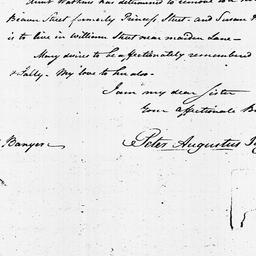 Aunt Watkins has determined to remove to a
Beaver Street formerly Princess Street and Susan
is to live in William Street near maiden Lane—
Mary desires to be affectionately remembered
& Sally. My love to her also.
I am my dear Sister
Your affectionate B
Banyer
Peter Augustus Ja